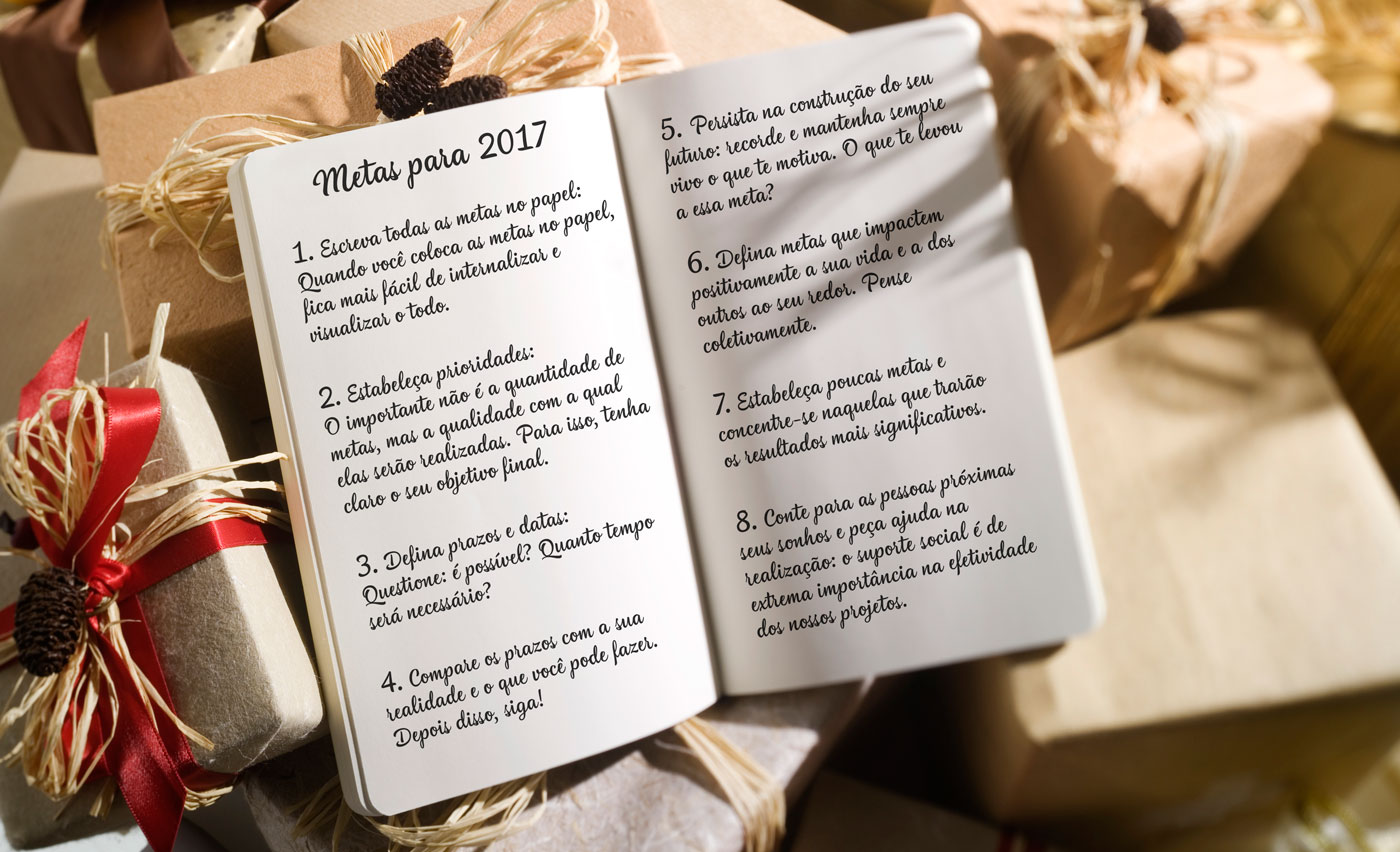 Metas para 2017
1. Escreva todas as metas no papel:
Quando você coloca as metas no papel,
fica mais fácil de internalizar e
visualizar o todo.
2. Estabeleça prioridades:
O importante não é a quantidade de
metas, mas a qualidade com a qual
elas serão realizadas. Para isso, tenha
claro o seu objetivo final.
3. Defina prazos e datas:
Questione: é possível? Quanto tempo
será necessário?
4. Compare os prazos com a sua
realidade e o que você pode fazer.
Depois disso, siga!
5. Persista na construção do seu
futuro: recorde e mantenha sempre
vivo o que te motiva. O que te levou
a essa meta?
6. Defina metas que impactem
positivamente a sua vida e a dos
outros ao seu redor. Pense
coletivamente.
7. Estabeleça poucas metas e
concentre-se naquelas que trarão
os resultados mais significativos.
8. Conte para as pessoas próximas
seus sonhos e peça ajuda na
realização: o suporte social é de
extrema importância na efetividade
dos nossos projetos.